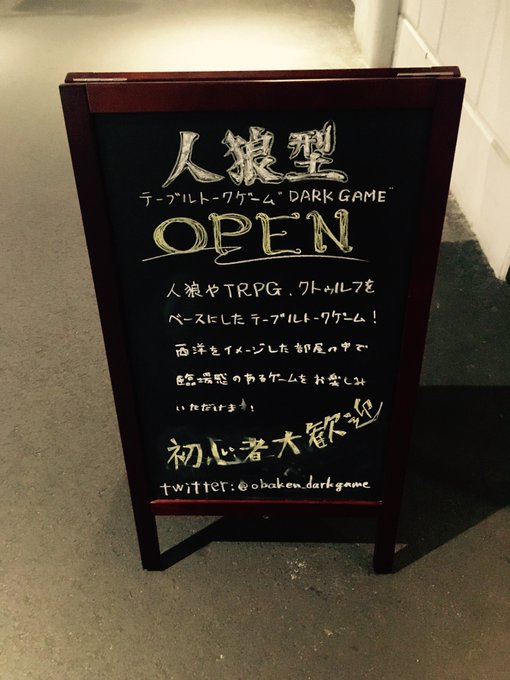 人狼型
テーブルトークゲーム"DARK GAME"
OPEN
人狼やTRPG、クトゥルフを
ベースにしたテーブルトークゲーム!
西洋をイメージした部屋の中で
臨場感のあるゲームをお楽しみ
いただけます!
初心者大歓迎
twitter:@obaken_darkgame